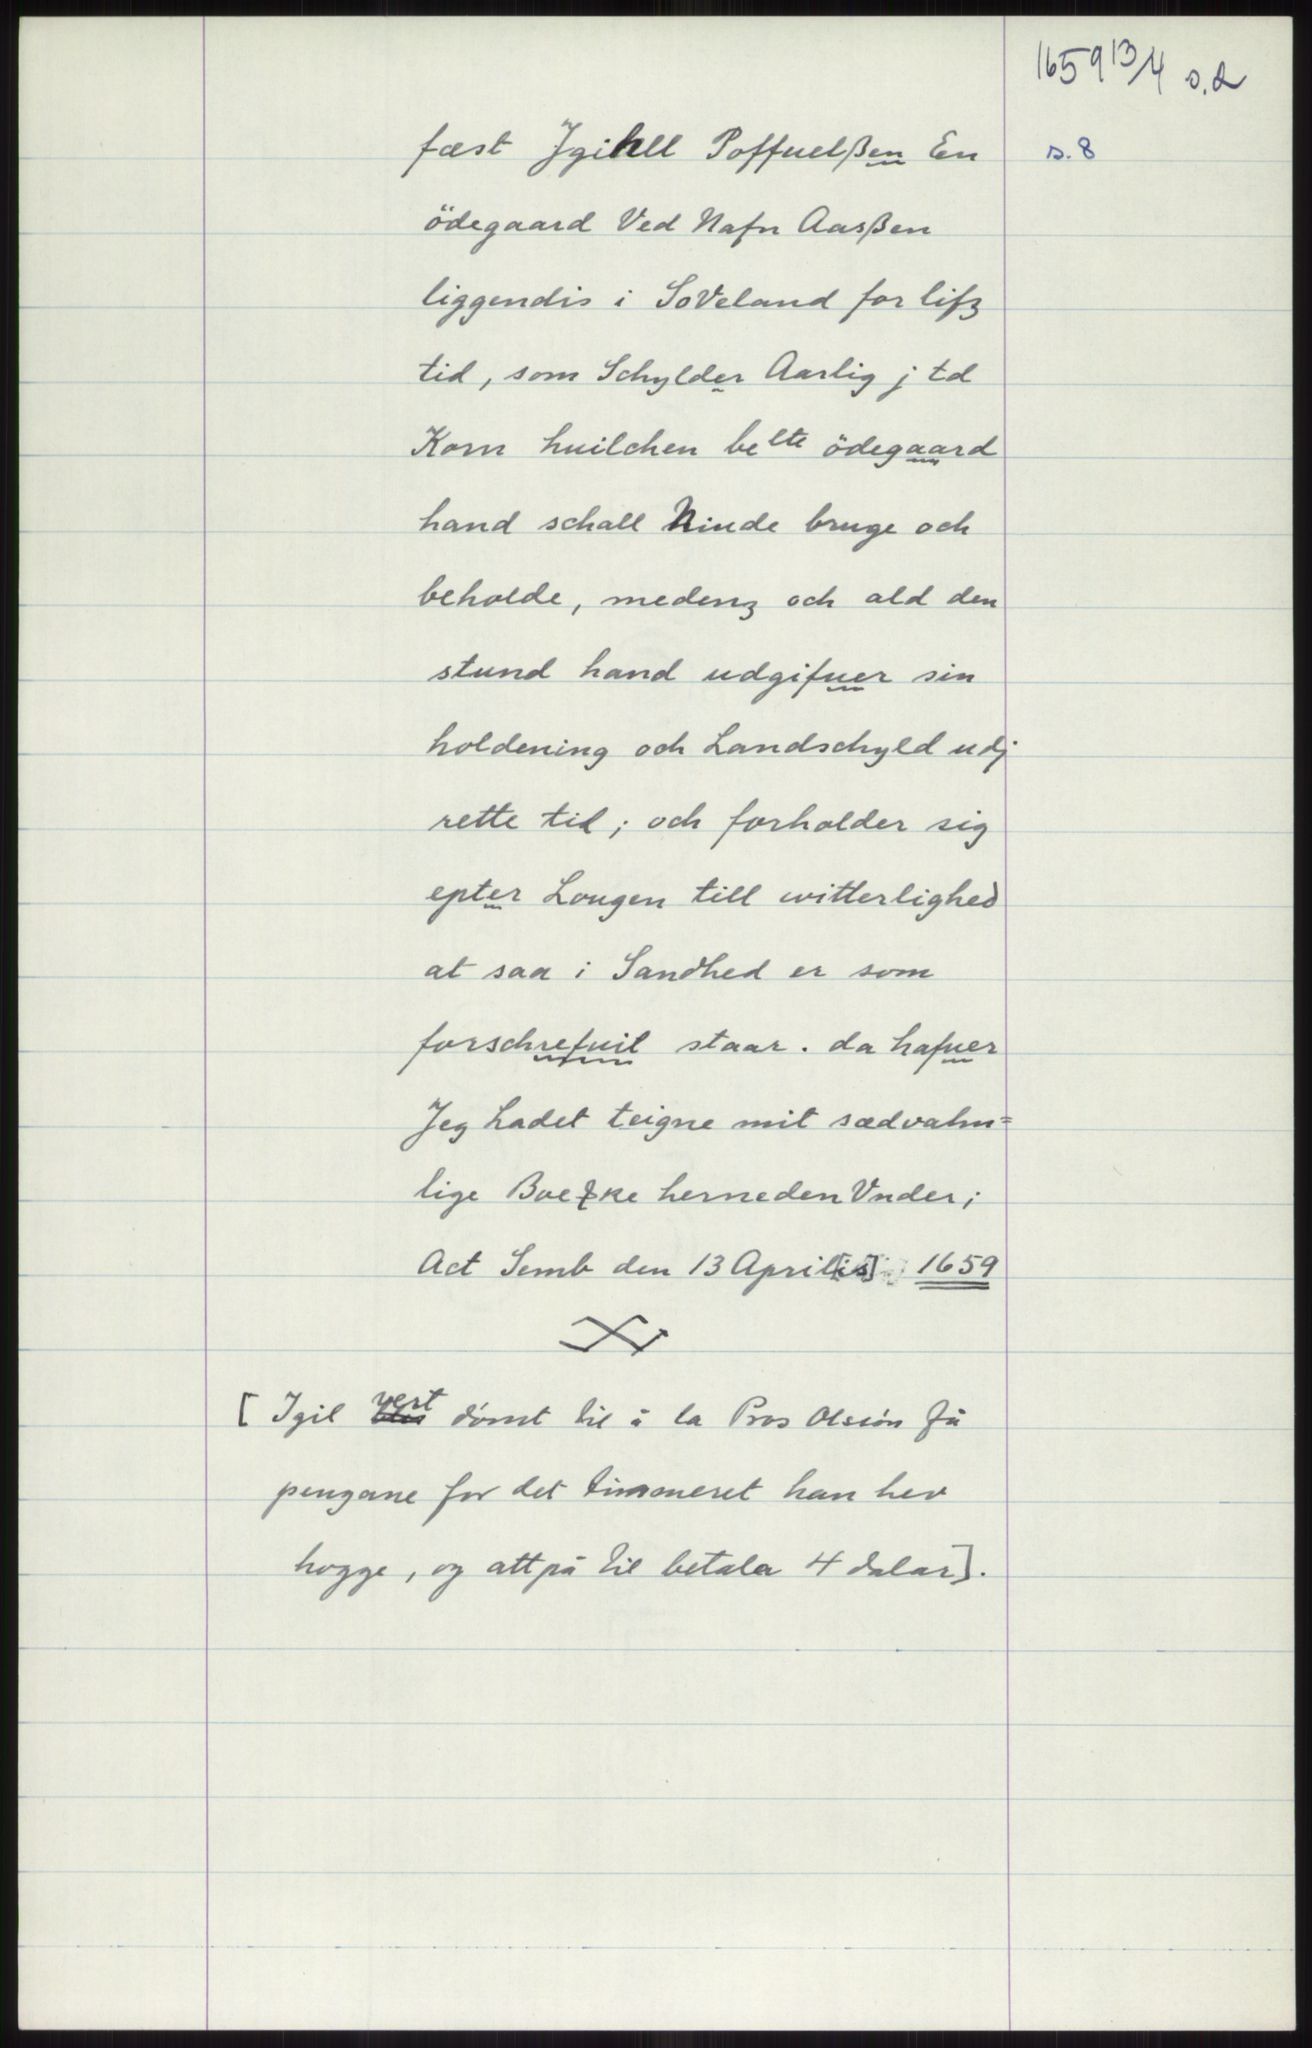 1659 13/4 s.2
fæst Jgihll Poffuelßen En s.8
ödegaard Ved Nafn Aasßen
liggendis i SoVeland for lifz
tid, som Schylder Aarlig j td
Korn huilchen belte ödegaard
hand schall Niude bruge och
beholde, medenz och ald den
stund hand udgifuer sin
holdening och Landschyld udj
rette tid; och forholder sig
epter Lougen till witterlighed
at saa i Sandhed er som
forschrefuit staar. da hafuer
Jeg Ladet teigne mit sædvahn=
lige Boeßke herneden Vnder;
Act Semb den 13 April[is] 1659
[Igil vert dömt til å la Pros Olsson få
pengane for det timmeret han hev
hogge, og attpå til betala 4 dalar].